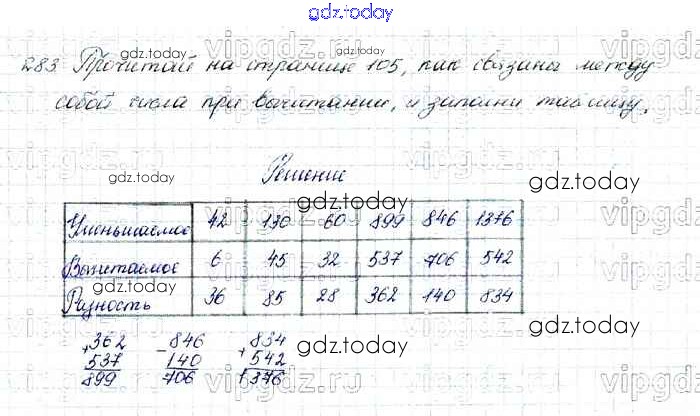 gdz.today
283 Прочитай на странице 105, как связаны между
собой числа при вычитании, и заполни таблицу.
Решение
Уменьшаемое 42 130 60 899 846 1376
Вычитаемое 6 45 32 537 706 542
Разность 36 85 28 362 140 834
+362 -846 +834
537 140 542
899 706 1376
gdz.today
gdz.today
gdz.today
gdz.today
gdz.today
gdz.today
gdz.today
vipgdz.ru